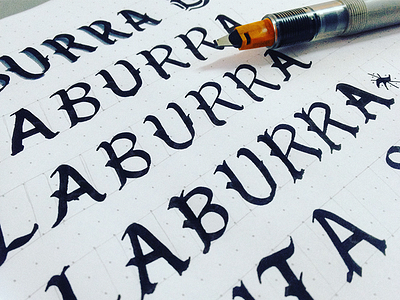 BURRA
ABURRA
LABURRA
LABURRA
TA